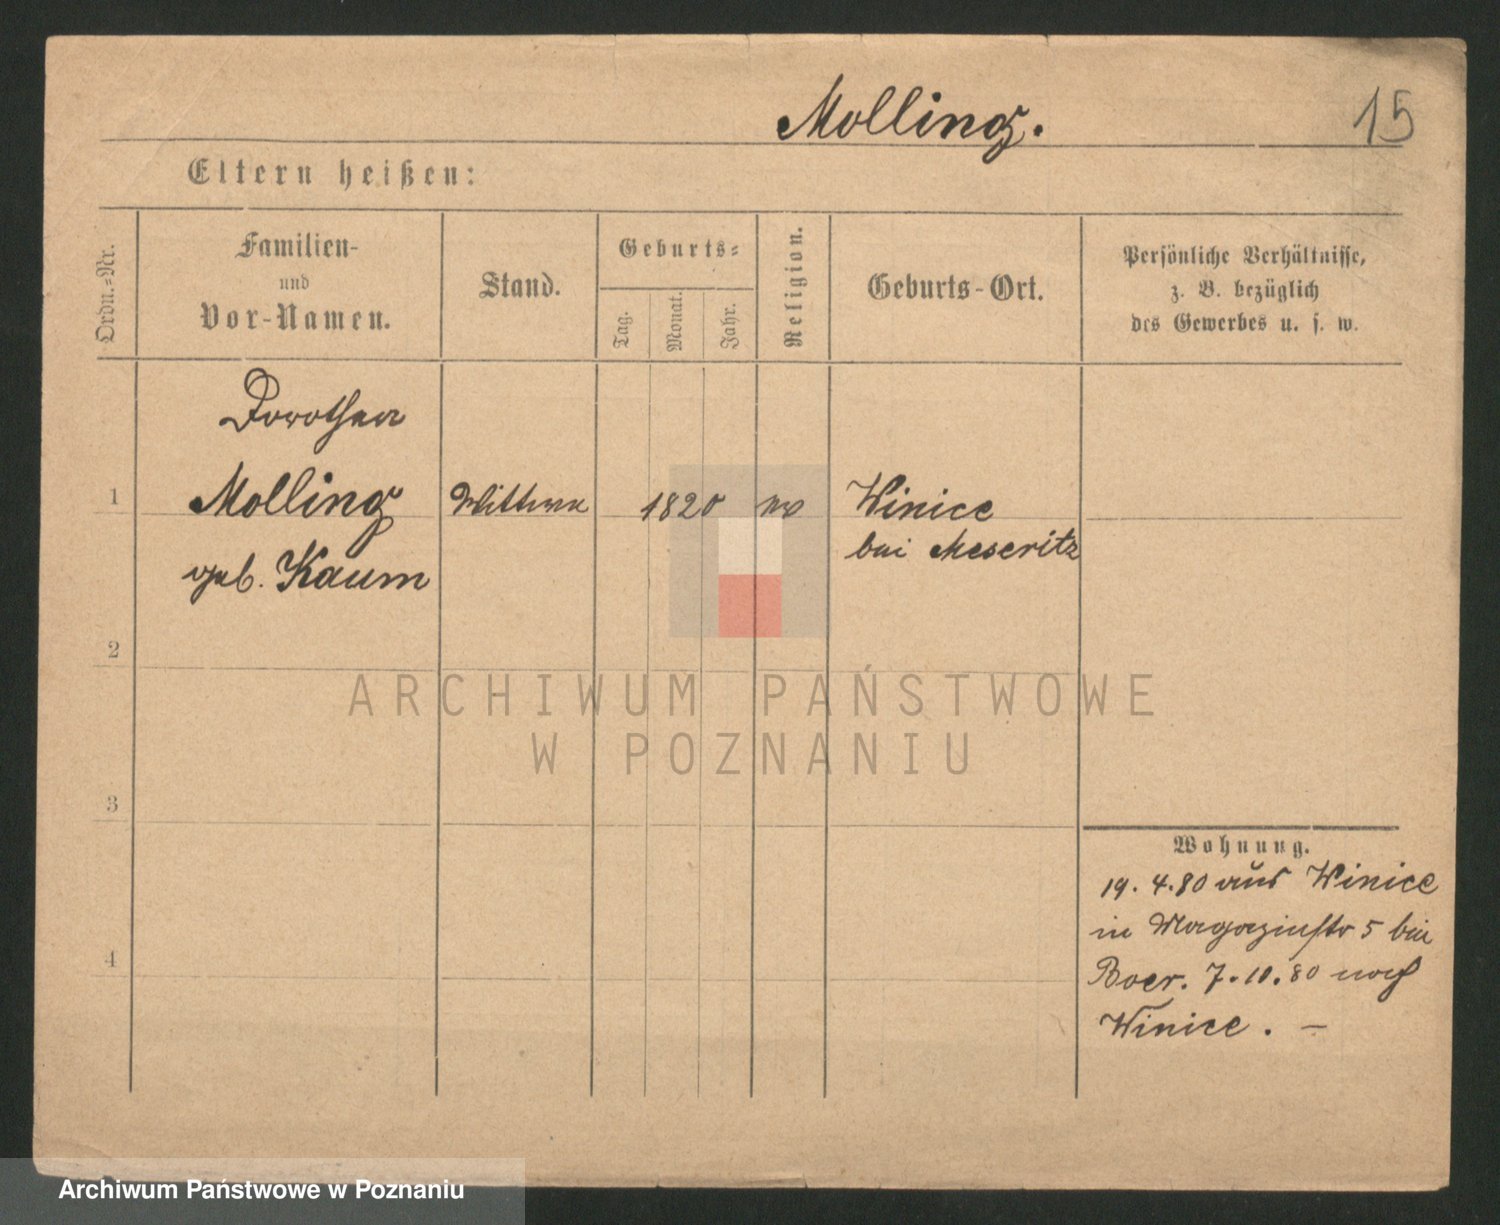 Molling.
15
Eltern heißen:
Ordn.-Nr.
Familien-
und
Vor-Namen.
Stand.
Geburts-
Tag.
Monat.
Jahr.
Religion.
Geburts-Ort.
Persönliche Verhältnisse,
z. B. bezüglich
des Gewerbes u. s. w.
Dorothea
1 Molling Wittwe 1820 ev Winice
bei Meseritz
geb. Kaum
2
ARCHIWUM PAŃSTWOWE
W POZNANIU
3
Wohnung.
19. 4. 80 aus Winice
in Magazinstr 5 bei
4
Boer. 7. 10. 80 nach
Winice. –
Archiwum Państwowe w Poznaniu